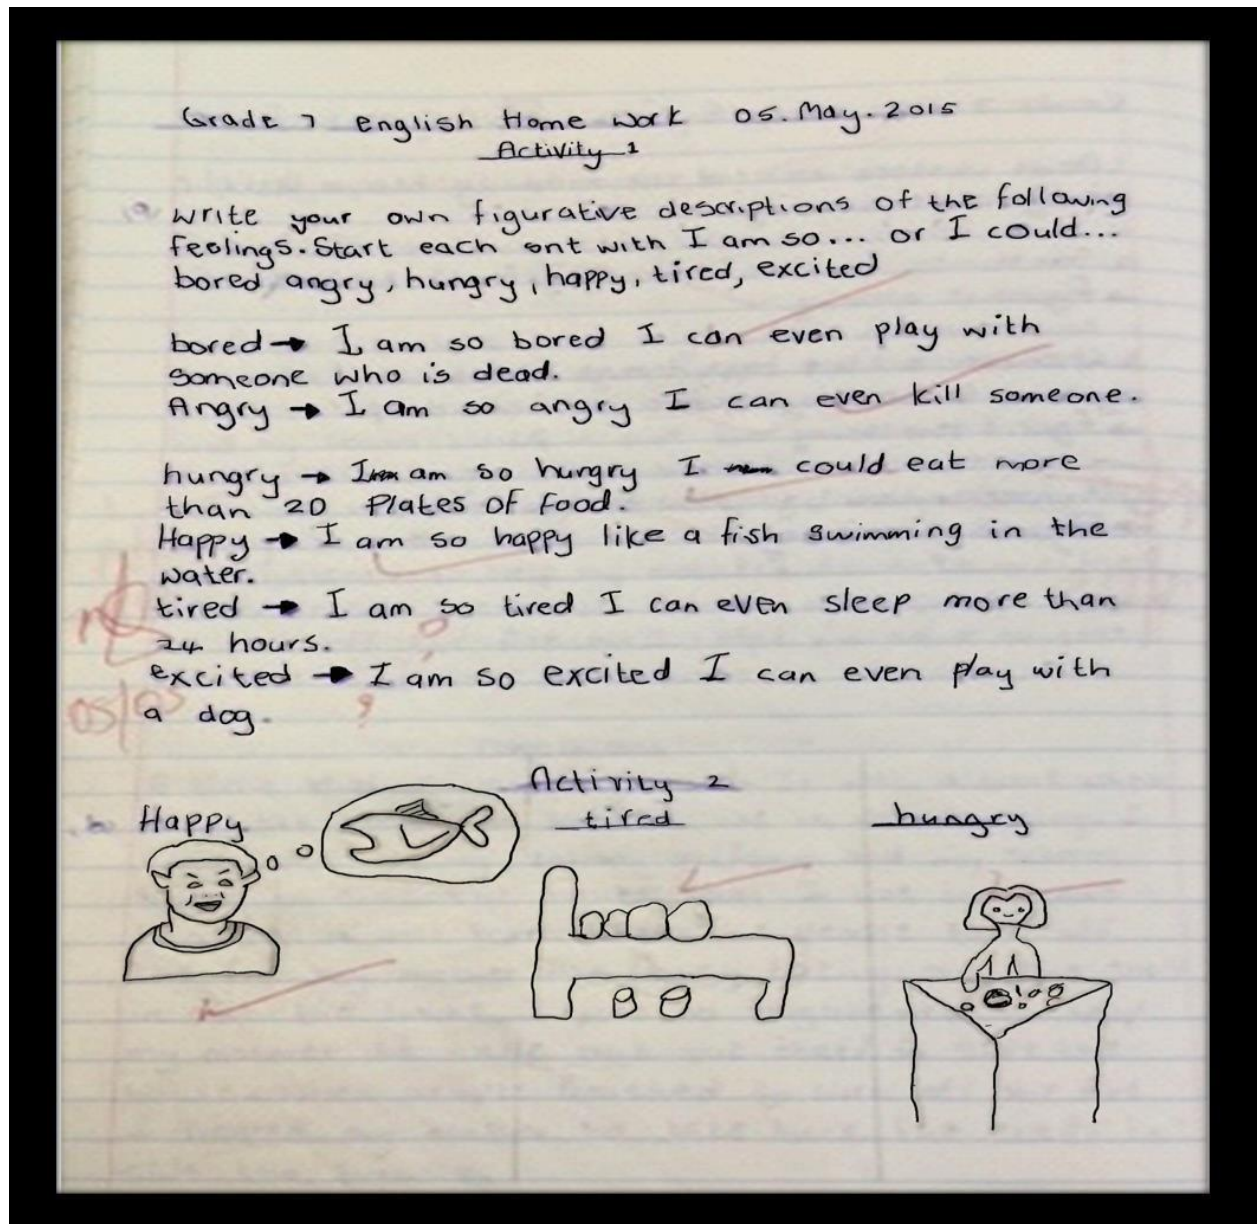 Grade 7 English Home Work 05. May. 2015
Activity 1
a write your own figurative descriptions of the following
feelings. Start each ont with I am so... or I could...
bored, angry, hungry, happy, tired, excited
bored → I am so bored I can even play with
someone who is dead.
Angry → I am so angry I can even kill someone.
hungry → I am so hungry I could eat more
than 20 Plates of food.
Happy → I am so happy like a fish swimming in the
water.
tired → I am so tired I can even sleep more than
24 hours.
excited → I am so excited I can even play with
a dog.
05/05
?
Activity 2
b Happy
tired
hungry